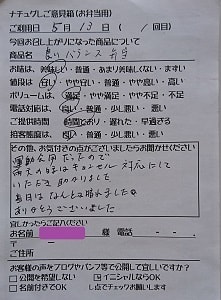 ナチュグしご意見箱(お弁当用)
ご利用日 5月13日 ( / 回目)
今回お召し上がりになった商品について
商品名 良いバランス 弁当
お味は、美味しい・普通・あまり美味しくない・まずい
値段は、安い・やや安い・普通・やや高い・高い
ボリュームは、満足・やや満足・やや不足・不足
電話対応は、良い・普通・少し悪い・悪い
ご提供時間 時間どおり・遅れた・早過ぎる
接客態度は、良い・普通・少し悪い・悪い
その他、お気付きの点がございましたらお聞かせください
運動会用だったので
雨天の時はキャンセル対応にして
いただき助かりました
当日はなんとか晴れました
ありがとうございました
宜しかったらご記入ください
お名前 様 電話 - -
〒 -
ご住所
お客様の声をブログやパンフ等で公開して宜しいですか?
□公開を希望しない ☑イニシャルならOK
□名前付きでOK しを点でチェックお願いします